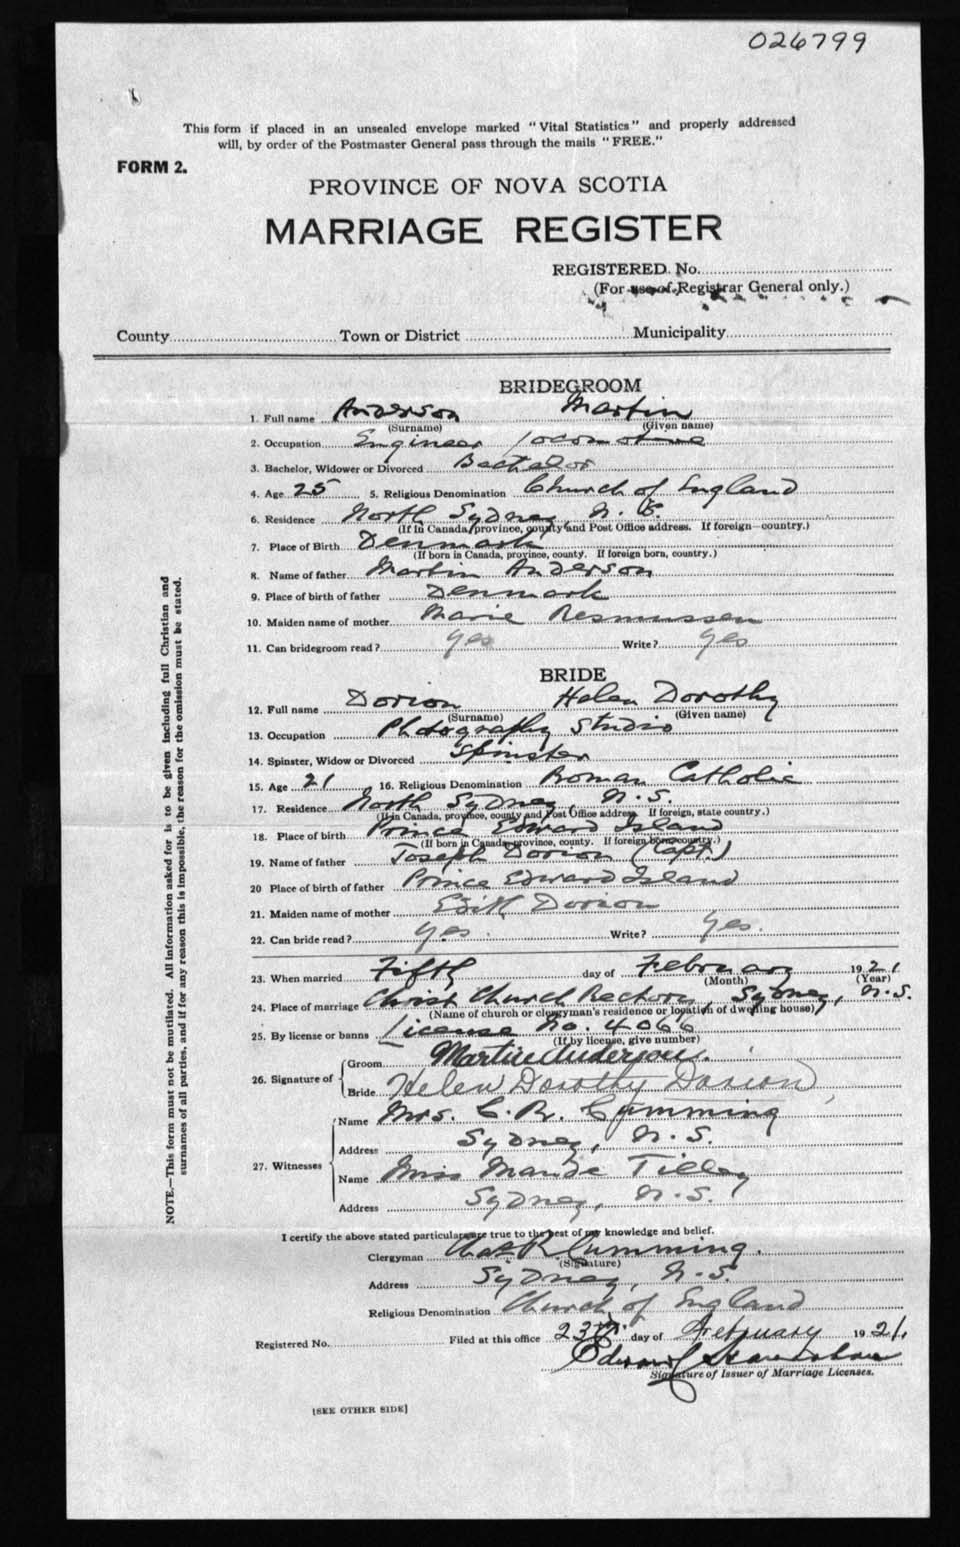 026799
This form if placed in an unsealed envelope marked "Vital Statistics" and properly addressed
will, by order of the Postmaster General pass through the mails "FREE."
FORM 2.
PROVINCE OF NOVA SCOTIA
MARRIAGE REGISTER
REGISTERED. No.
(For use of Registrar General only.)
County Town or District Municipality
BRIDEGROOM
1. Full name Anderson Martin
(Surname) (Given name)
2. Occupation Engineer locomotive
3. Bachelor, Widower or Divorced Bachelor
4. Age 25 5. Religious Denomination Church of England
6. Residence North Sydney, N. S.
(If in Canada, province, county and Post Office address. If foreign country.)
7. Place of Birth Denmark
(If born in Canada, province, county. If foreign born, country.)
8. Name of father Martin Anderson
9. Place of birth of father Denmark
10. Maiden name of mother Marie Resmussen
11. Can bridegroom read? yes Write? yes
BRIDE
12. Full name Dorion Helen Dorothy
(Surname) (Given name)
13. Occupation Photography Studio
14. Spinster, Widow or Divorced Spinster
15. Age 21 16. Religious Denomination Roman Catholic
17. Residence North Sydney, N.S.
(If in Canada, province, county and Post Office address. If foreign, state country.)
18. Place of birth Prince Edward Island
(If born in Canada, province, county. If foreign born, country.)
19. Name of father Joseph Dorion (Capt.)
20 Place of birth of father Prince Edward Island
21. Maiden name of mother Edith Dorion
22. Can bride read? yes. Write? yes.
23. When married Fifth day of February 1921
(Month) (Year)
24. Place of marriage Christ Church Rectory, Sydney, N.S.
(Name of church or clergyman's residence or location of dwelling house)
25. By license or banns License No. 4066
(If by license, give number)
26. Signature of
Groom Martin Anderson.
Bride Helen Dorothy Dorion
27. Witnesses
Name Mrs. C. R. Cumming
Address Sydney, N.S.
Name Miss Maude Tilley
Address Sydney, N.S.
I certify the above stated particulars are true to the best of my knowledge and belief.
Clergyman Chas R Cumming.
(Signature)
Address Sydney, N.S.
Religious Denomination Church of England
Registered No. Filed at this office 23rd day of February 1921
Signature of Issuer of Marriage Licenses.
[SEE OTHER SIDE]
NOTE.—This form must not be mutilated. All information asked for is to be given including full Christian and
surnames of all parties, and if for any reason this is impossible, the reason for the omission must be stated.